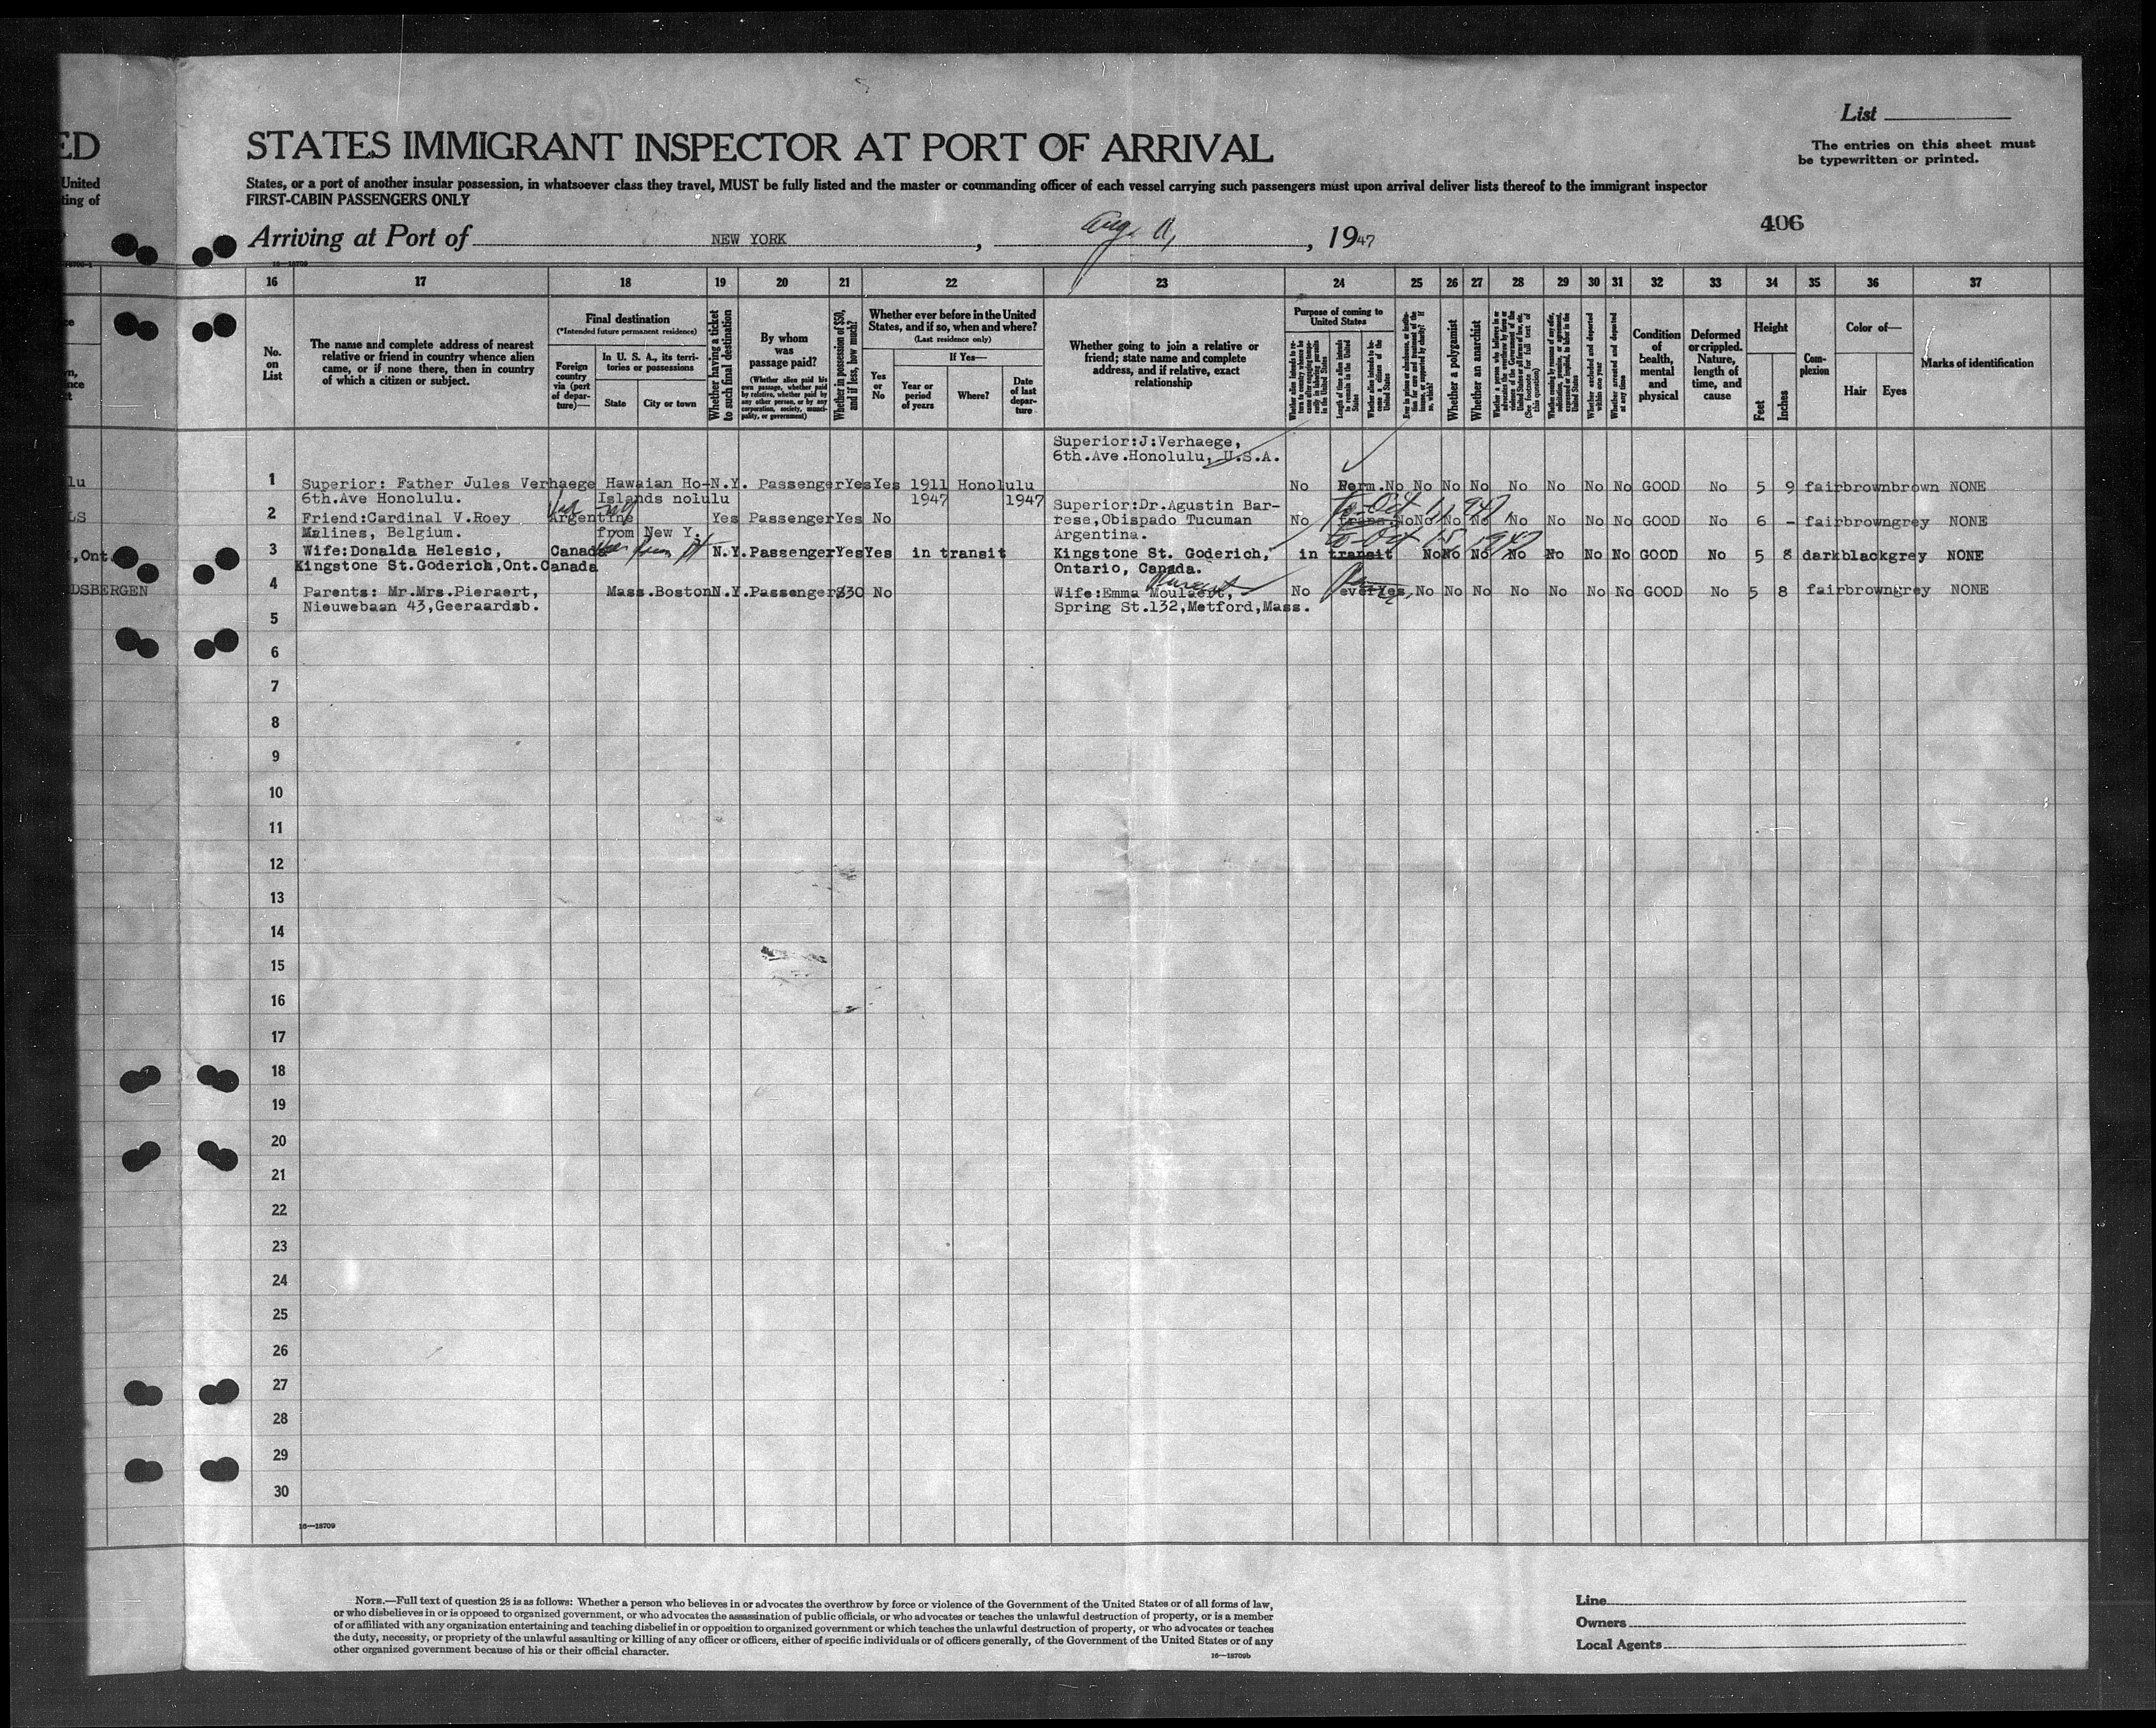 List
The entries on this sheet must
be typewritten or printed.
ED
STATES IMMIGRANT INSPECTOR AT PORT OF ARRIVAL
United
ting of
States, or a port of another insular possession, in whatsoever class they travel, MUST be fully listed and the master or commanding officer of each vessel carrying such passengers must upon arrival deliver lists thereof to the immigrant inspector
FIRST-CABIN PASSENGERS ONLY
406
Arriving at Port of NEW YORK, Aug. 11, 1947
16—18709
16 17 18 19 20 21 22 23 24 25 26 27 28 29 30 31 32 33 34 35 36 37
No. on List
The name and complete address of nearest relative or friend in country whence alien came, or if none there, then in country of which a citizen or subject.
Final destination
(*Intended future permanent residence)
Foreign country via (port of departure)—
In U. S. A., its territories or possessions
State
City or town
Whether having a ticket to such final destination
By whom was passage paid?
(Whether alien paid his own passage, whether paid by relative, whether paid by any other person, or by any corporation, society, municipality, or government)
Whether in possession of $50, and if less, how much?
Whether ever before in the United States, and if so, when and where?
(Last residence only)
Yes or No
If Yes—
Year or period of years
Where?
Date of last departure
Whether going to join a relative or friend; state name and complete address, and if relative, exact relationship
Purpose of coming to United States
Length of time alien intends to remain in the United States
Whether alien intends to become a citizen of the United States
Whether a polygamist
Whether an anarchist
Whether excluded and deported within one year
Whether arrested and deported at any time
Condition of health, mental and physical
Deformed or crippled. Nature, length of time, and cause
Height
Feet
Inches
Complexion
Color of—
Hair
Eyes
Marks of identification
Superior:J:Verhaege,
6th.Ave.Honolulu, U.S.A.
lu
1 Superior: Father Jules Verhaege Hawaian Ho- N.Y. Passenger Yes Yes 1911 Honolulu No Perm. No No No No No No No No GOOD No 5 9 fair brown brown NONE
6th.Ave Honolulu. Islands nolulu 1947 1947
LS
2 Friend:Cardinal V.Roey Argentine Yes Passenger Yes No Superior:Dr.Agustin Bar-
rese,Obispado Tucuman No trans. No No No No No No No No GOOD No 6 - fair brown grey NONE
Malines, Belgium. from New Y. Argentina.
to Oct 11, 1947
to Oct 15 1947
,Ont.
3 Wife:Donalda Helesic, Canada N.Y. Passenger Yes Yes in transit Kingstone St. Goderich, in transit No No No No No No No GOOD No 5 8 dark black grey NONE
Kingstone St.Goderich,Ont.Canada Ontario, Canada.
DSBERGEN
4 Parents: Mr.Mrs.Pieraert, Mass. Boston N.Y. Passenger $30 No Wife:Emma Moulaert, No ever Yes, No No No No No No No GOOD No 5 8 fair brown grey NONE
Nieuwebaan 43,Geeraardsb. Spring St.132,Metford,Mass.
5
6
7
8
9
10
11
12
13
14
15
16
17
18
19
20
21
22
23
24
25
26
27
28
29
30
16—18709
NOTE.—Full text of question 28 is as follows: Whether a person who believes in or advocates the overthrow by force or violence of the Government of the United States or of all forms of law,
or who disbelieves in or is opposed to organized government, or who advocates the assassination of public officials, or who advocates or teaches the unlawful destruction of property, or is a member
of or affiliated with any organization entertaining and teaching disbelief in or opposition to organized government or which teaches the unlawful destruction of property, or who advocates or teaches
the duty, necessity, or propriety of the unlawful assaulting or killing of any officer or officers, either of specific individuals or of officers generally, of the Government of the United States or of any
other organized government because of his or their official character.
16—18709b
Line
Owners
Local Agents